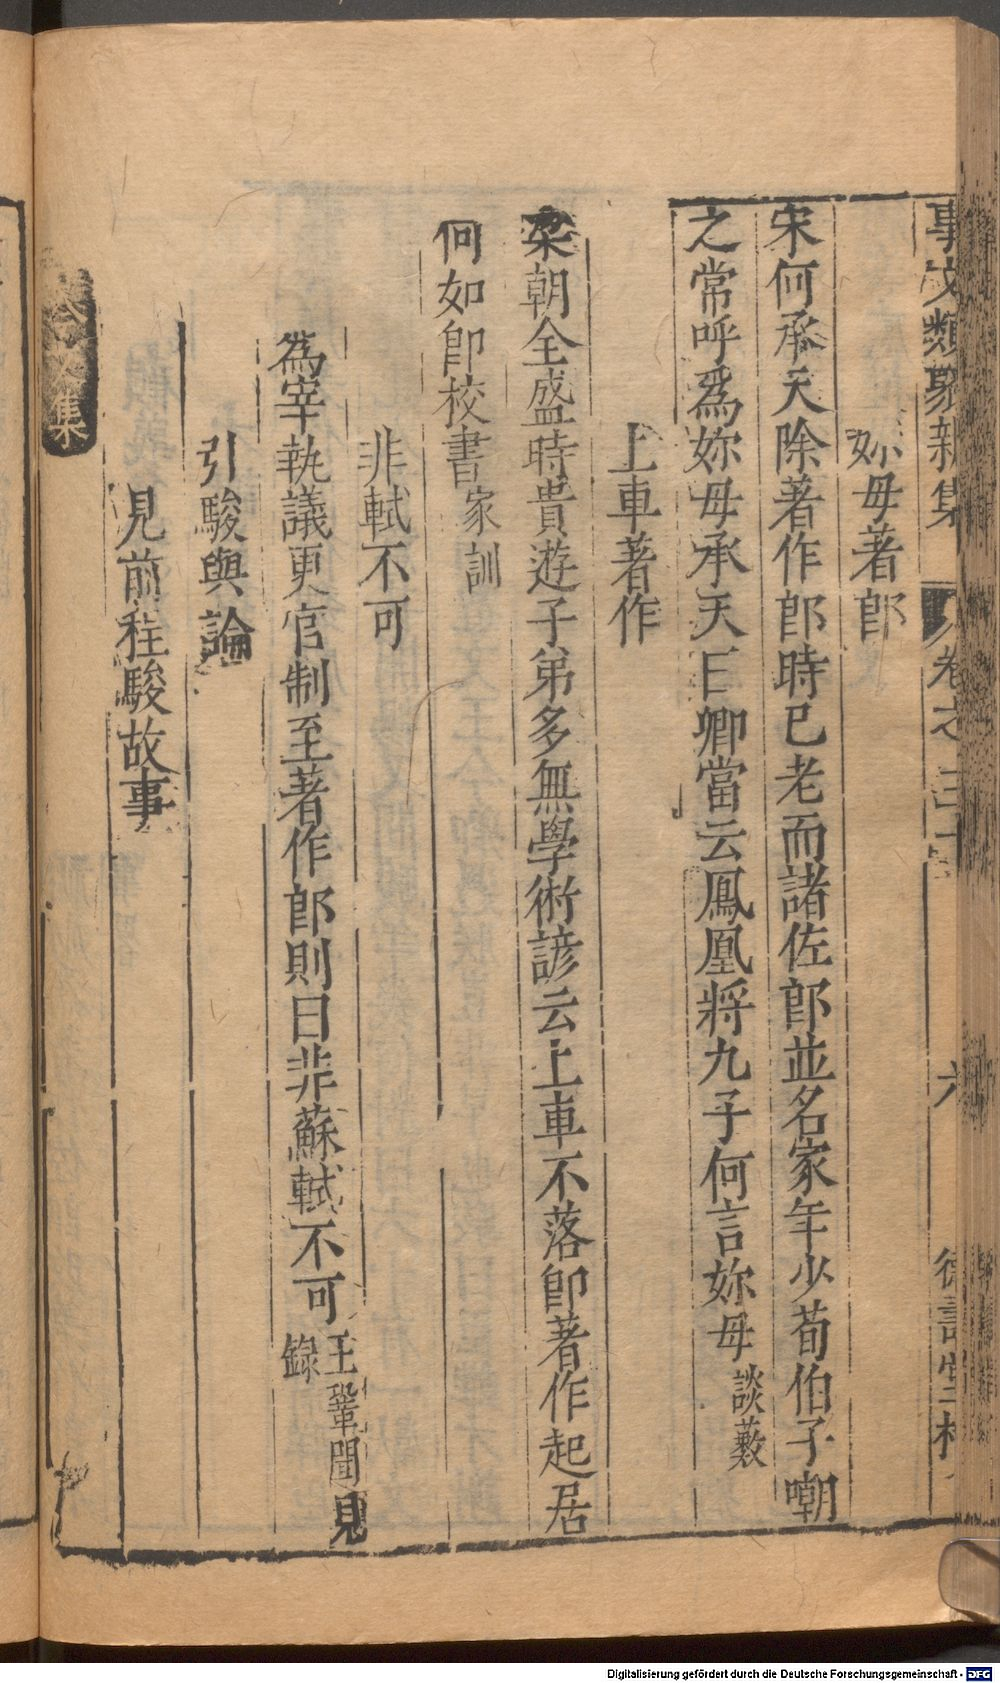 事文類聚新集 卷之三十 六 德壽堂梓
妳母著郎
宋何承天除著作郎時已老而諸佐郎並名家年少荀伯子嘲
之常呼爲妳母承天曰卿當云鳳凰將九子何言妳母談藪
上車著作
梁朝全盛時貴遊子弟多無學術諺云上車不落卽著作起居
何如卽校書家訓
非軾不可
為宰執議更官制至著作郎則曰非蘇軾不可王鞏聞見錄
引駿與論
見前程駿故事
集
Digitalisierung gefördert durch die Deutsche Forschungsgemeinschaft - DFG